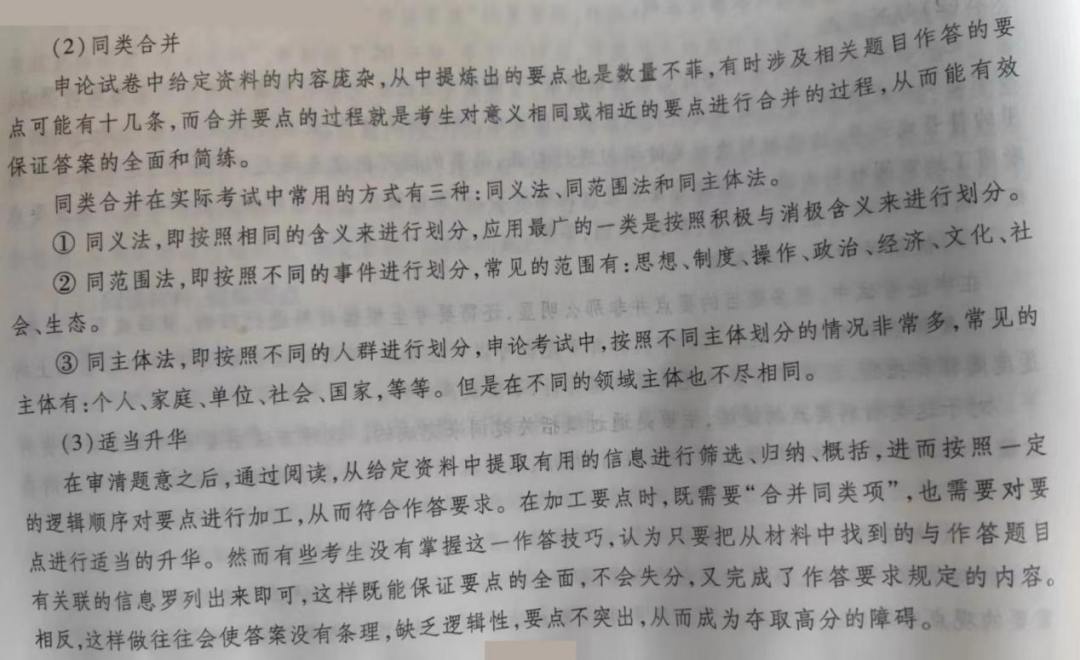 (2)同类合并
申论试卷中给定资料的内容庞杂,从中提炼出的要点也是数量不菲,有时涉及相关题目作答的要
点可能有十几条,而合并要点的过程就是考生对意义相同或相近的要点进行合并的过程,从而能有效
保证答案的全面和简练。
同类合并在实际考试中常用的方式有三种:同义法、同范围法和同主体法。
① 同义法,即按照相同的含义来进行划分,应用最广的一类是按照积极与消极含义来进行划分。
② 同范围法,即按照不同的事件进行划分,常见的范围有:思想、制度、操作、政治、经济、文化、社
会、生态。
③ 同主体法,即按照不同的人群进行划分,申论考试中,按照不同主体划分的情况非常多,常见的
主体有:个人、家庭、单位、社会、国家,等等。但是在不同的领域主体也不尽相同。
(3)适当升华
在审清题意之后,通过阅读,从给定资料中提取有用的信息进行筛选、归纳、概括,进而按照一定
的逻辑顺序对要点进行加工,从而符合作答要求。在加工要点时,既需要“合并同类项”,也需要对要
点进行适当的升华。然而有些考生没有掌握这一作答技巧,认为只要把从材料中找到的与作答题目
有关联的信息罗列出来即可,这样既能保证要点的全面,不会失分,又完成了作答要求规定的内容。
相反,这样做往往会使答案没有条理,缺乏逻辑性,要点不突出,从而成为夺取高分的障碍。